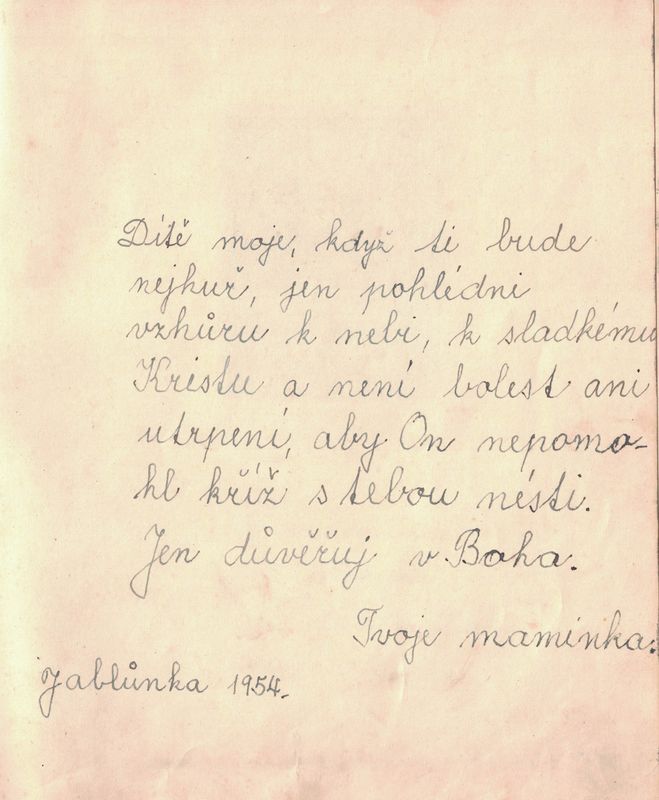 Dítě moje, když ti bude
nejhuř, jen pohlédni
vzhůru k nebi, k sladkému
Kristu a není bolest ani
utrpení, aby On nepomo-
hl kříž s tebou nésti.
Jen důvěřuj v Boha.
Tvoje maminka.
Jablůnka 1954.